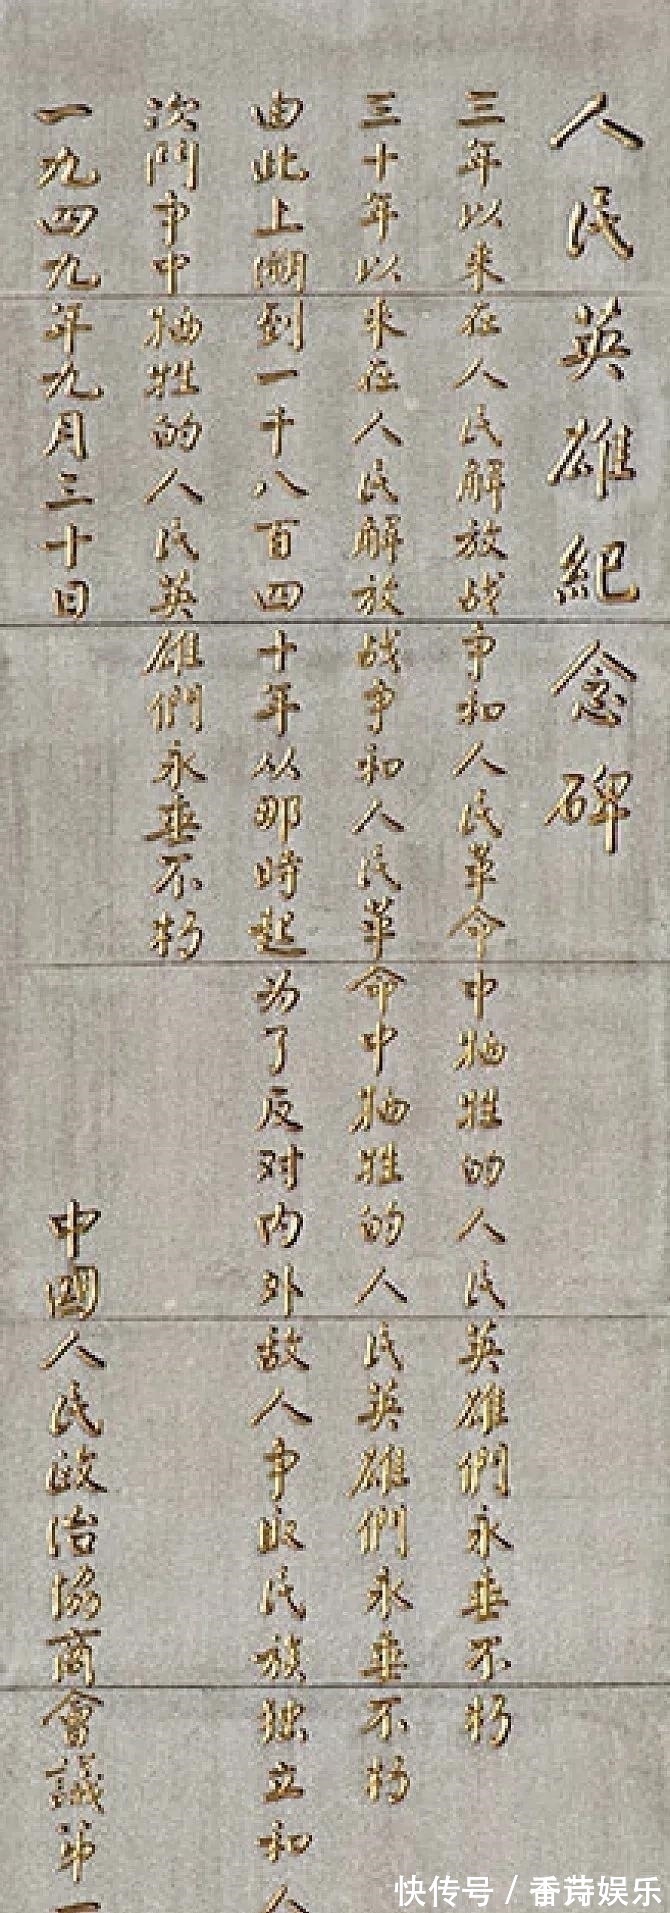 人民英雄紀念碑
三年以来在人民解放战争和人民革命中牺牲的人民英雄們永垂不朽
三十年以来在人民解放战争和人民革命中牺牲的人民英雄們永垂不朽
由此上溯到一千八百四十年从那時起为了反对内外敌人争取民族独立和人
次鬥争中牺牲的人民英雄們永垂不朽
一九四九年九月三十日 中國人民政治協商會議第一
快传号 / 娱乐